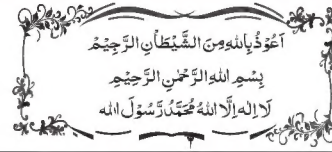 اَعُوْذُ بِاللهِ مِنَ الشَّيْطَانِ الرَّجِيْمِ
بِسْمِ اللهِ الرَّحْمٰنِ الرَّحِيْمِ
لَا اِلٰهَ اِلَّا اللهُ مُحَمَّدٌ رَّسُوْلَ الله